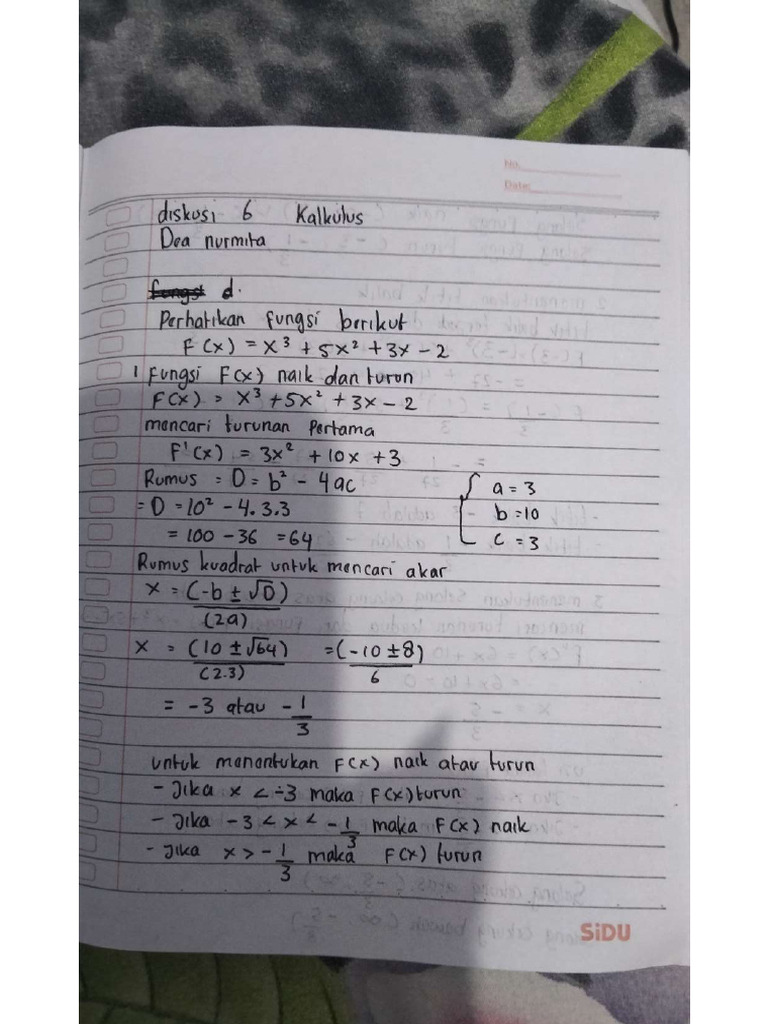 No.
Date:
diskusi 6 Kalkulus
Dea nurmita
d.
Perhatikan fungsi berikut
F(x) = x³ + 5x² + 3x - 2
1 fungsi F(x) naik dan turun
F(x) = x³ + 5x² + 3x - 2
mencari turunan Pertama
F'(x) = 3x² + 10x + 3
Rumus = D = b² - 4ac { a = 3
= D = 10² - 4.3.3 b = 10
= 100 - 36 = 64 c = 3
Rumus kuadrat untuk mencari akar
x = (-b ± √D)
(2a)
x = (10 ± √64) = (-10 ± 8)
(2.3) 6
= -3 atau -1
3
untuk menentukan F(x) naik atau turun
- Jika x < -3 maka F(x) turun
- Jika -3 < x < -1/3 maka F(x) naik
- Jika x > -1/3 maka F(x) turun
SiDU